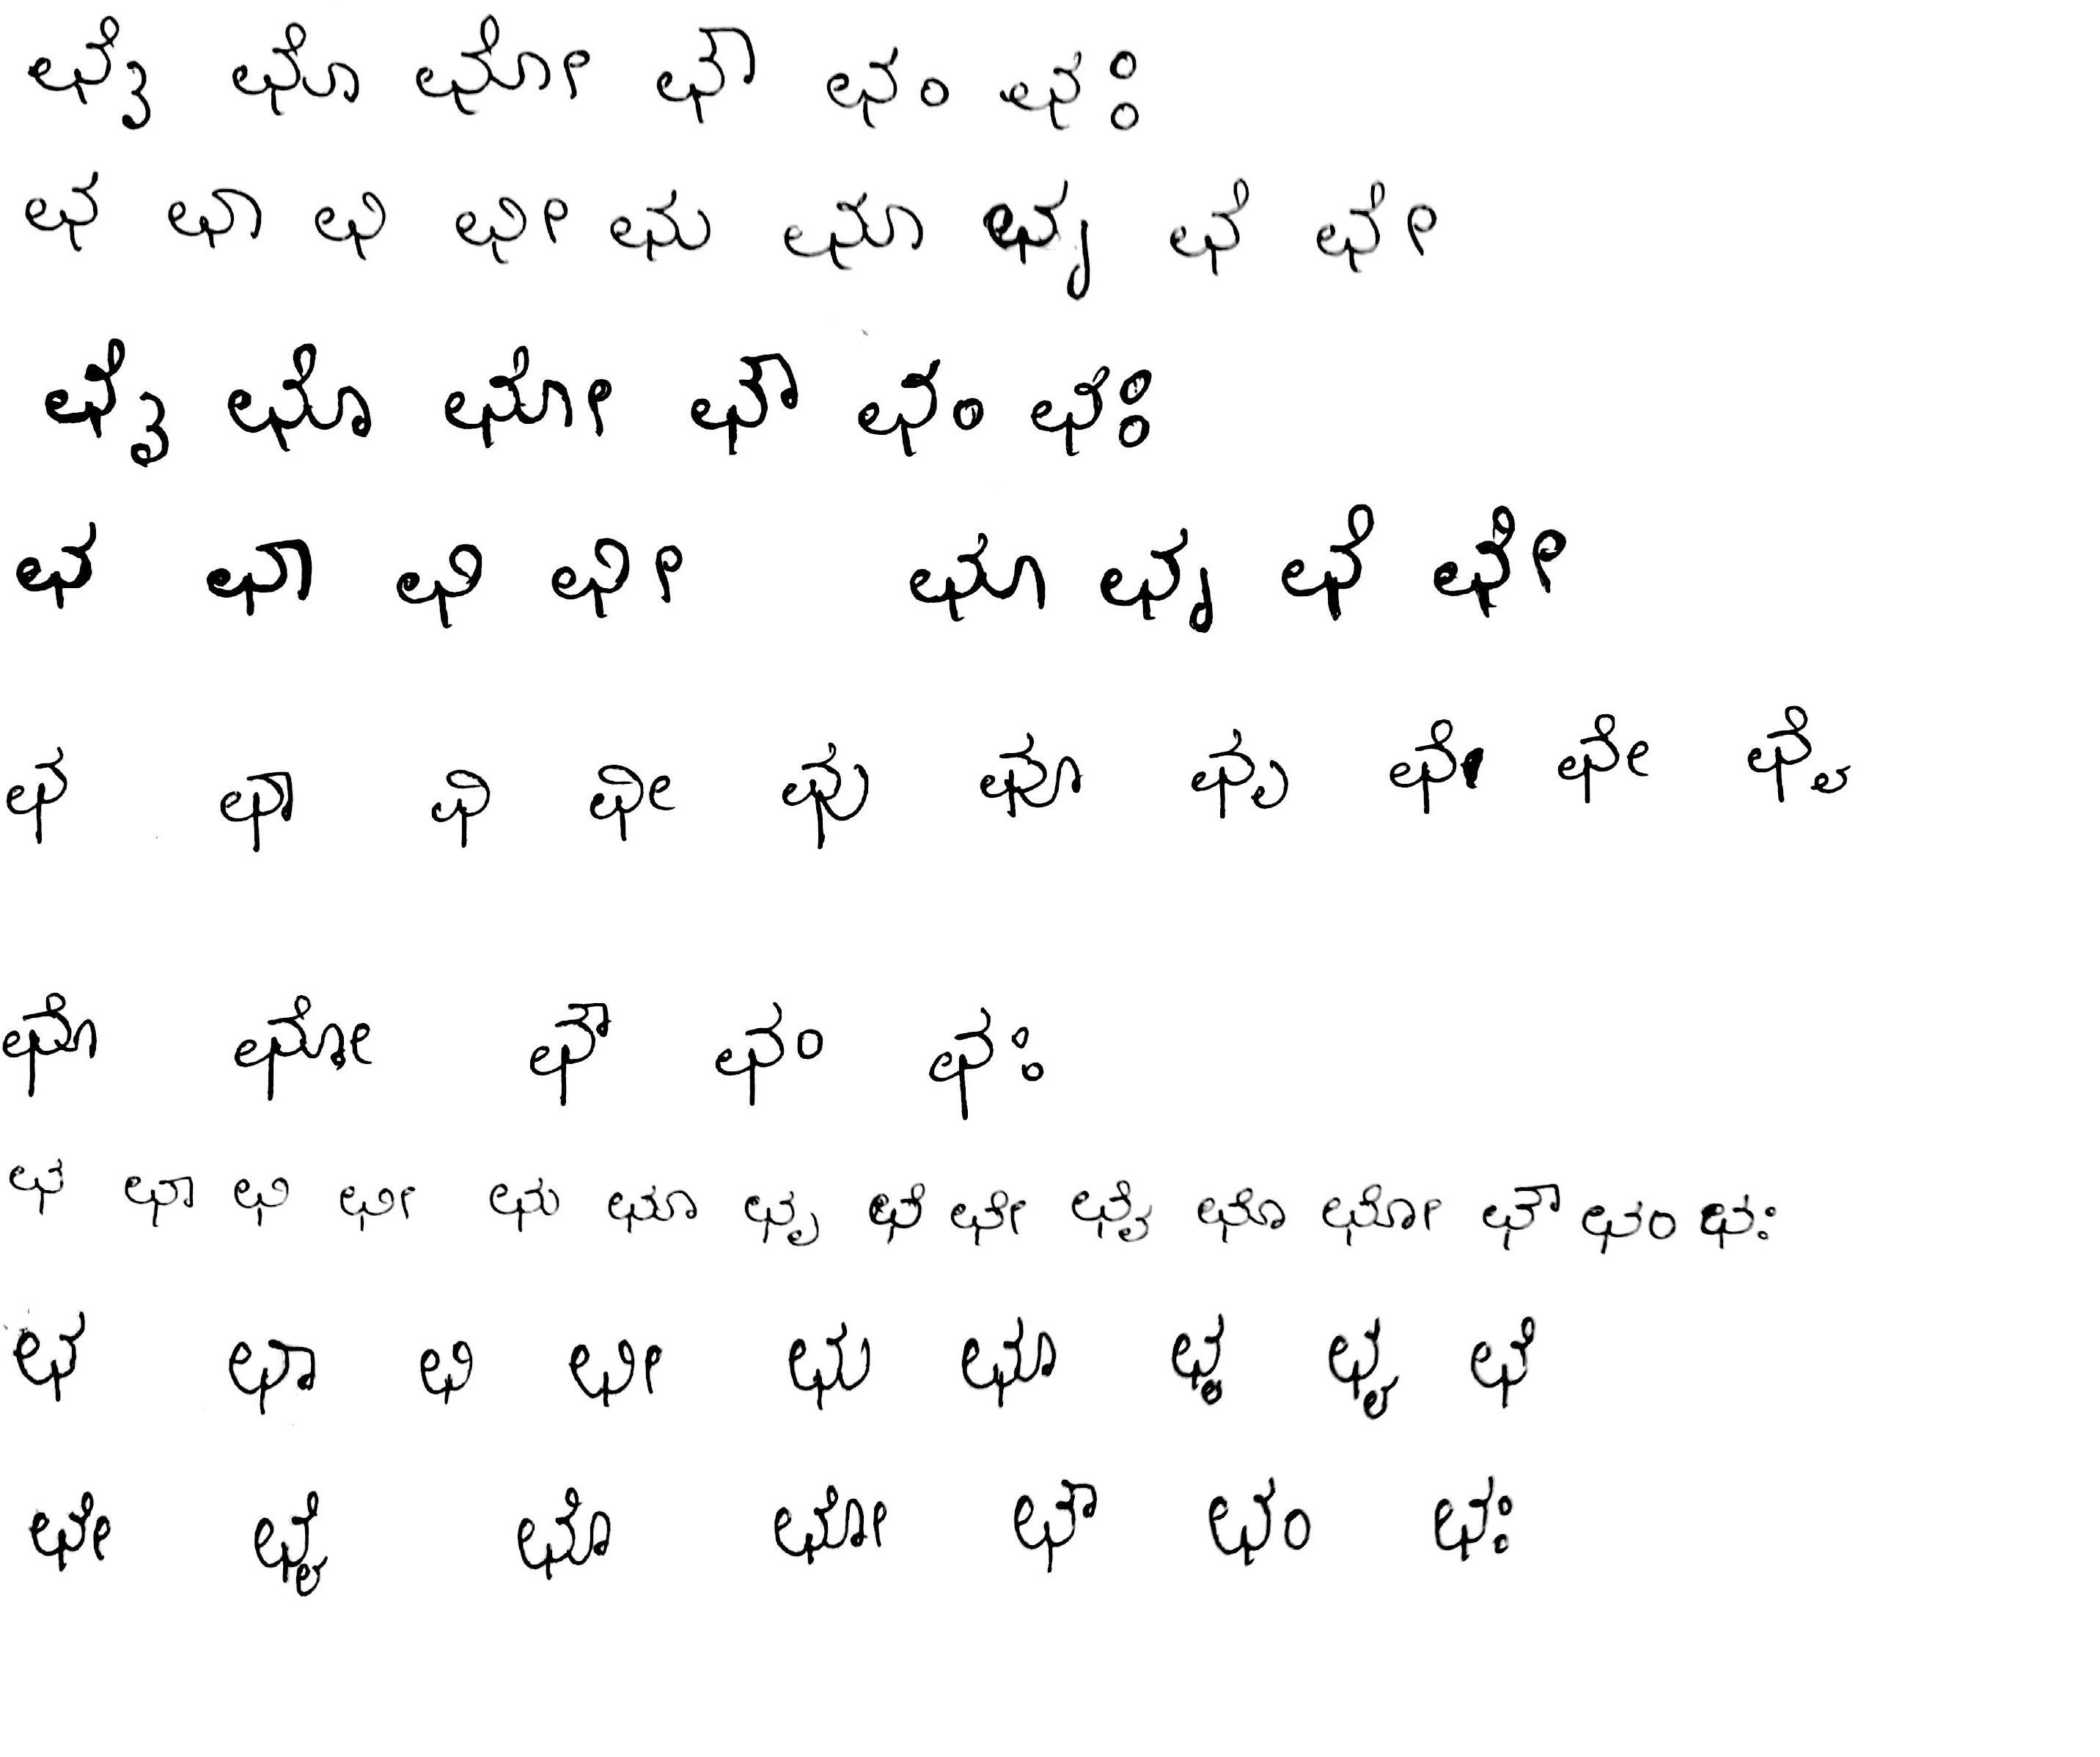 ಛೈ ಛೊ ಛೋ ಛೌ ಛಂ ಛಃ
ಛ ಛಾ ಛಿ ಛೀ ಛು ಛೂ ಛೃ ಛೆ ಛೇ
ಛೈ ಛೊ ಛೋ ಛೌ ಛಂ ಛಃ
ಛ ಛಾ ಛಿ ಛೀ ಛೂ ಛೃ ಛೆ ಛೇ
ಛ ಛಾ ಛಿ ಛೀ ಛು ಛೂ ಛೃ ಛೆ ಛೇ ಛೈ
ಛೊ ಛೋ ಛೌ ಛಂ ಛಃ
ಛ ಛಾ ಛಿ ಛೀ ಛು ಛೂ ಛೃ ಛೆ ಛೇ ಛೈ ಛೊ ಛೋ ಛೌ ಛಂ ಛಃ
ಛ ಛಾ ಛಿ ಛೀ ಛು ಛೂ ಛೃ ಛೄ ಛೆ
ಛೇ ಛೈ ಛೊ ಛೋ ಛೌ ಛಂ ಛಃ